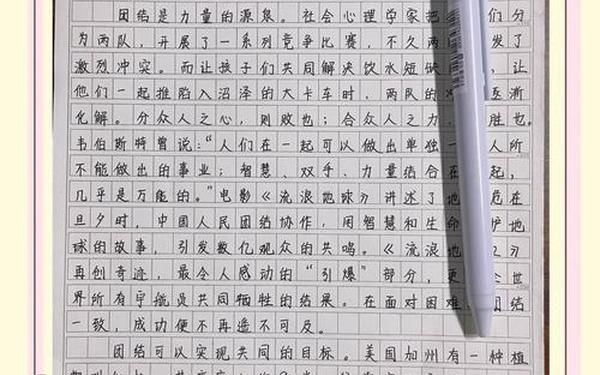 团结是力量的源泉。社会心理学家把 们分
为两队，开展了一系列竞争比赛，不久两 发了
激烈冲突。而让孩子们共同解决饮水短缺 ，让
他们一起推陷入沼泽的大卡车时，两队的 逐渐
化解。分众人之心，则败也；合众人之力， 胜也。
韦伯斯特曾说：“人们在一起可以做出单独一 人所
不能做出的事业；智慧、双手、力量结合在 起，
几乎是万能的。”电影《流浪地球》讲述了地 危在
旦夕时，中国人民团结协作，用智慧和生命 护地
球的故事，引发数亿观众的共鸣。《流浪地 2》
再创奇迹，最令人感动的“引爆”部分，更 全世
界所有宇航员共同牺牲的结果。在面对困难 团结
一致，成功便不再遥不可及。
团结可以实现共同的目标。美国加州有一种植